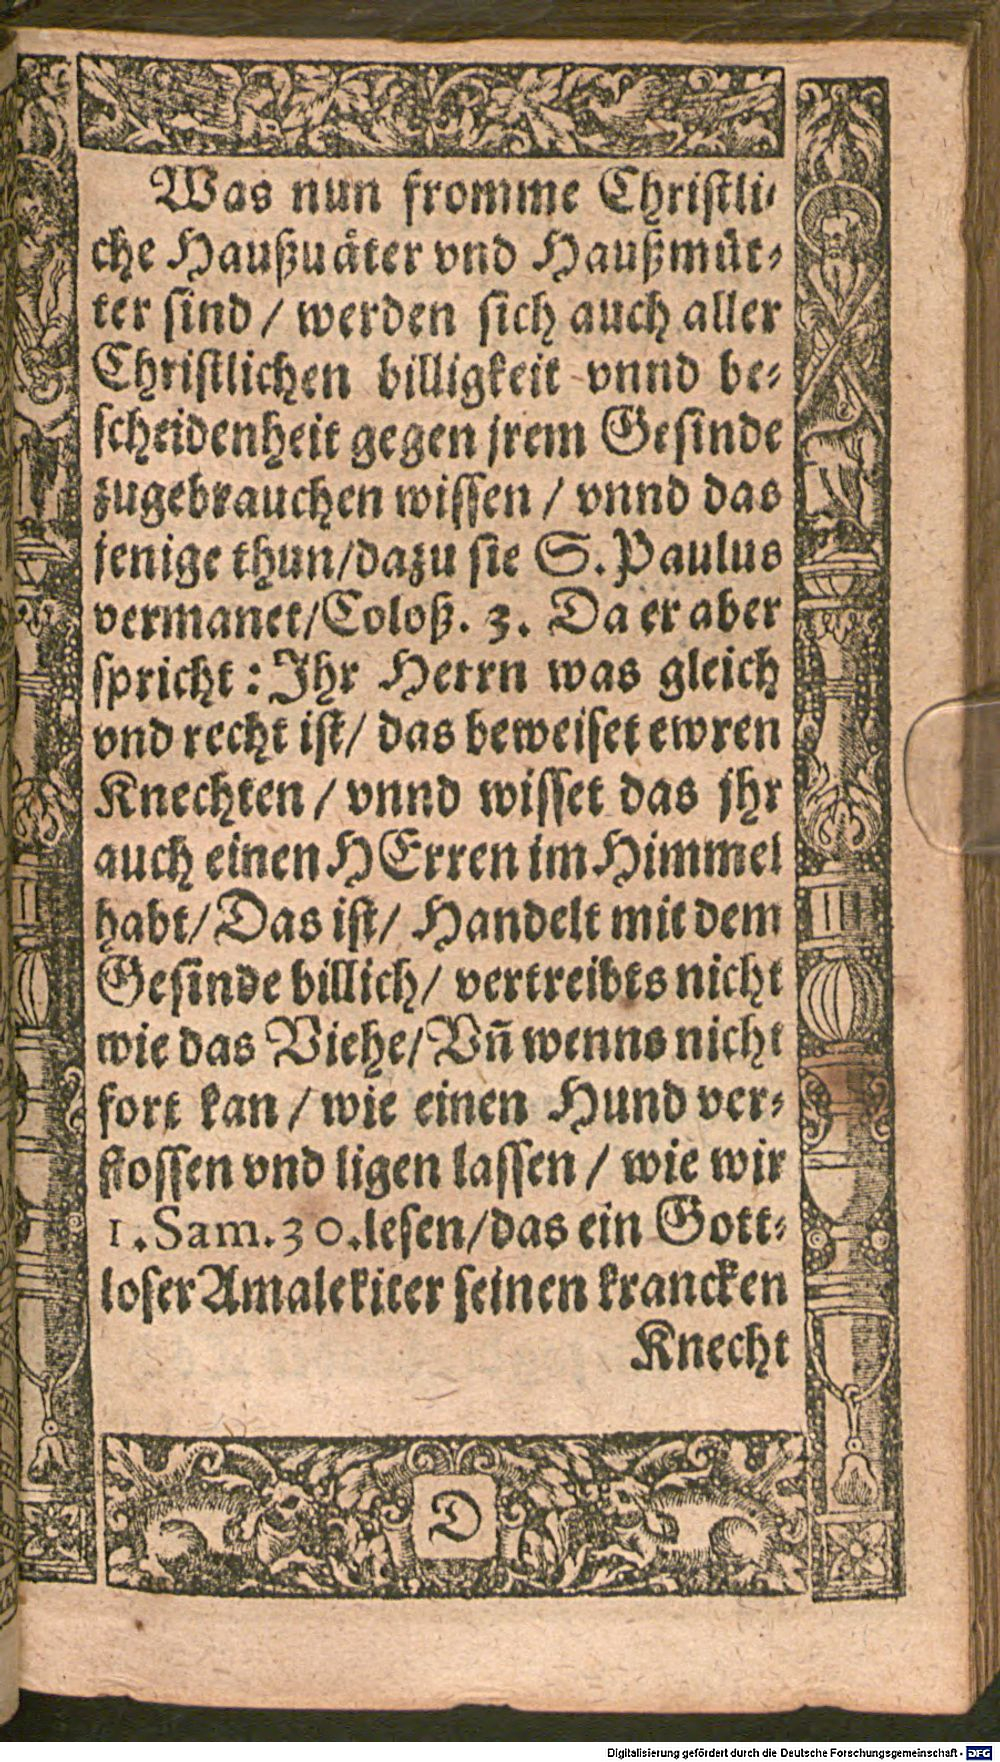 Was nun fromme Christli-
che Haußuäter vnd Haußmüt-
ter sind / werden sich auch aller
Christlichen billigkeit vnnd be-
scheidenheit gegen jrem Gesinde
zugebrauchen wissen / vnnd das
jenige thun/dazu sie S. Paulus
vermanet/Coloß. 3. Da er aber
spricht: Ihr Herrn was gleich
vnd recht ist/ das beweiset ewren
Knechten / vnnd wisset das jhr
auch einen HErren im Himmel
habt/Das ist/ Handelt mit dem
Gesinde billich/ vertreibts nicht
wie das Viehe/Vñ wenns nicht
fort kan / wie einen Hund ver-
stossen vnd ligen lassen / wie wir
1. Sam. 30. lesen/das ein Gott-
loser Amalekiter seinen krancken
Knecht
D
Digitalisierung gefördert durch die Deutsche Forschungsgemeinschaft - DFG